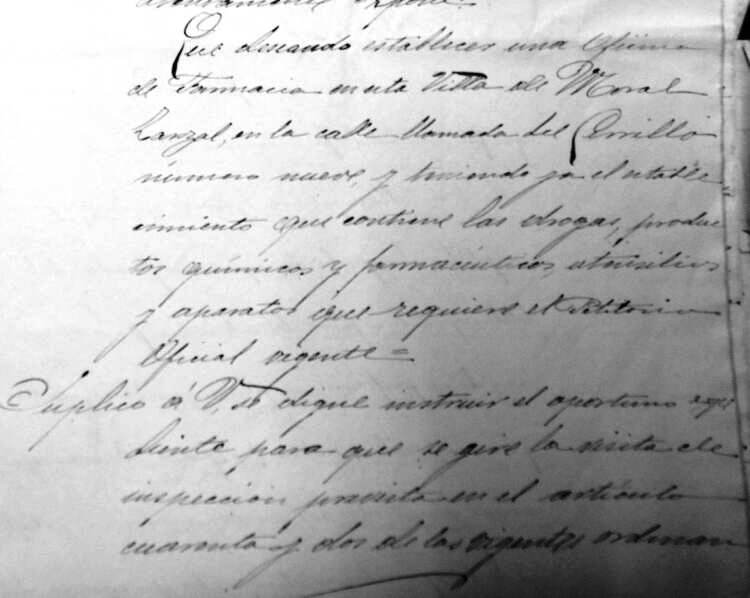 Que deseando establecer una Oficina
de Farmacia en esta Villa de Moral
zarzal, en la calle llamada del Cerrillo
número nueve, y teniendo ya el estable
cimiento que contiene las drogas, produc
tos químicos y farmacéuticos, utensilios
y aparatos que requiere el Petitorio
Oficial vigente =
Suplico á V, se digne instruir el oportuno expe
diente para que se gire la visita de
inspección prevista en el artículo
cuarenta y dos de las vigentes ordenan